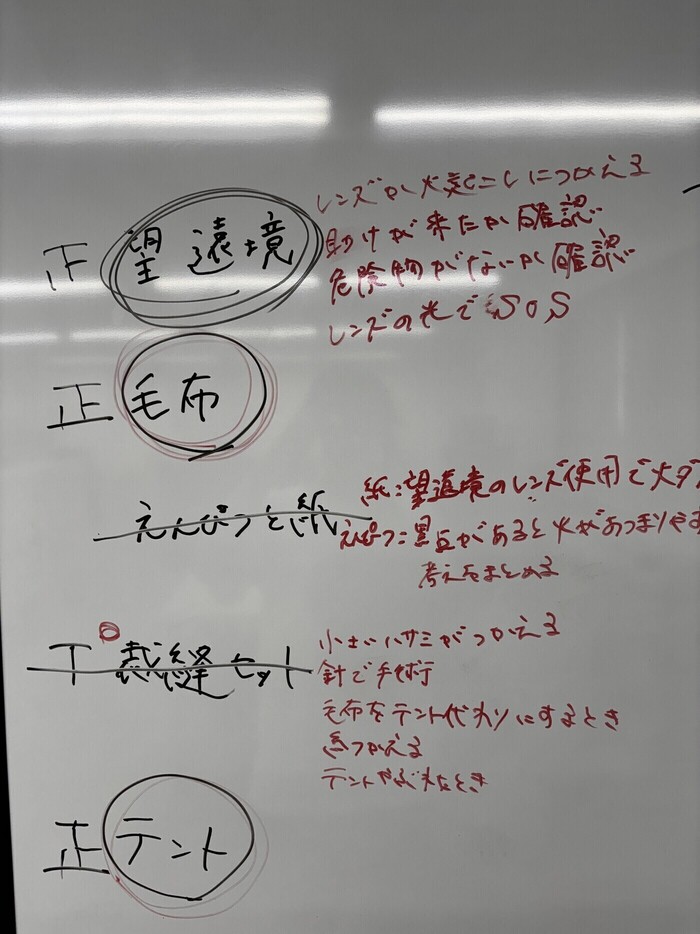 レンズが火起こしにつかえる
正 望遠境 助けが来たか確認
危険物がないか確認
レンズの光でSOS
正 毛布
紙:望遠境のレンズ使用で火ダ
えんぴつと紙 えんぴつ:黒点があると火があつまりやす
考えをまとめる
丅 裁縫セット 小さいハサミがつかえる
針で手術
毛布をテント代わりにするとき
糸つかえる
テントやぶれたとき
正 テント